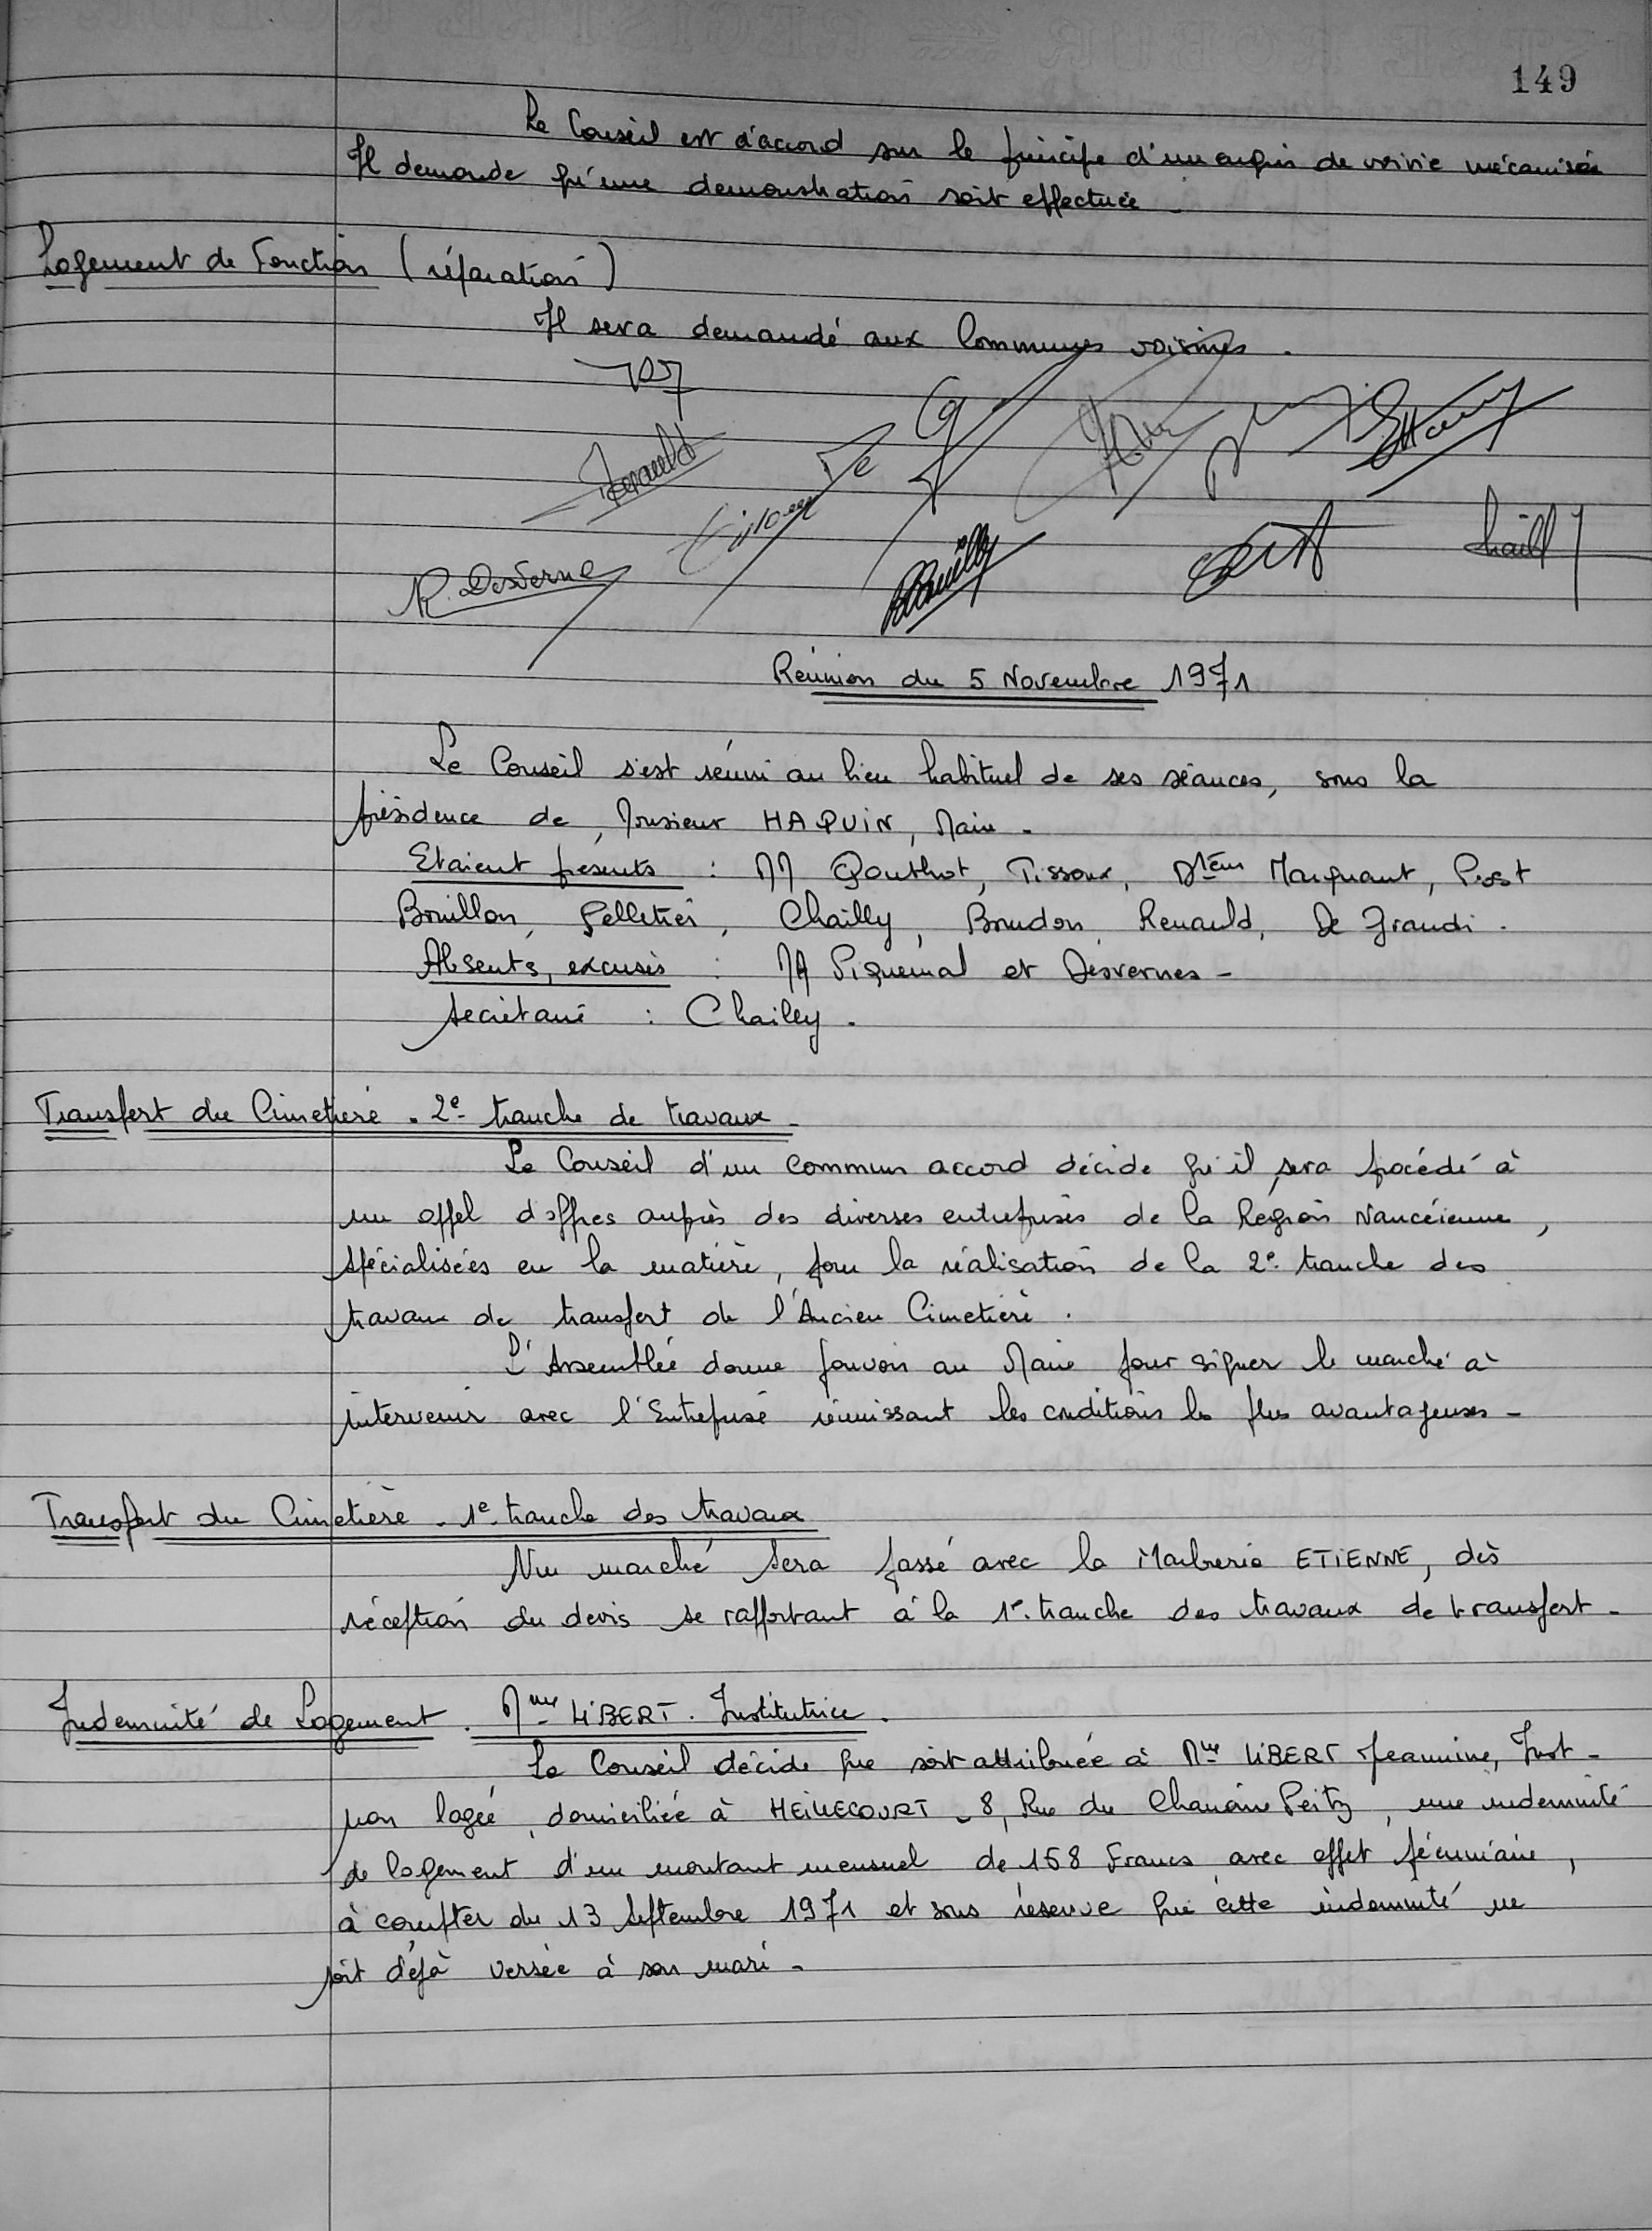 149
Le Conseil est d'accord sur le principe d'un engin de voirie mécanisée
Il demande qu'une demonstration soit effectuée.
Logement de Fonction (réparation)
Il sera demandé aux Communes voisines.
Renauld
R. Desverne
Chailly
Réunion du 5 Novembre 1971
Le Conseil s'est réuni au lieu habituel de ses séances, sous la
présidence de Monsieur HAQUIN, Maire.
Etaient présents : MM Gouthot, Tissoux, Marquant, Prost
Bouillon, Pelletier, Chailly, Boudon, Renauld, De Grandi.
Absents, excusés : MM Piquemal et Desvernes -
Secrétaire : Chailly.
Transfert du Cimetière. 2e tranche de travaux -
Le Conseil d'un commun accord décide qu'il sera procédé à
un appel d'offres auprès des diverses entreprises de la Région Nancéienne,
spécialisées en la matière, pour la réalisation de la 2e tranche des
travaux de transfert de l'Ancien Cimetière.
L'Assemblée donne pouvoir au Maire pour signer le marché à
intervenir avec l'Entreprise réunissant les conditions les plus avantageuses -
Transfert du Cimetière. 1e tranche des travaux
Un marché sera passé avec la Marbrerie ETIENNE, dès
réception du devis se rapportant à la 1e tranche des travaux de transfert -
Indemnité de Logement. Mme LIBERT. Institutrice.
Le Conseil décide que soit attribuée à Mme LIBERT Jeannine, Inst -
non logée, domiciliée à HEILLECOURT - 8, Rue du Chanoine Peitz, une indemnité
de logement d'un montant mensuel de 158 Francs avec effet pécuniaire,
à compter du 13 Septembre 1971 et sous réserve que cette indemnité ne
soit déjà versée à son mari -